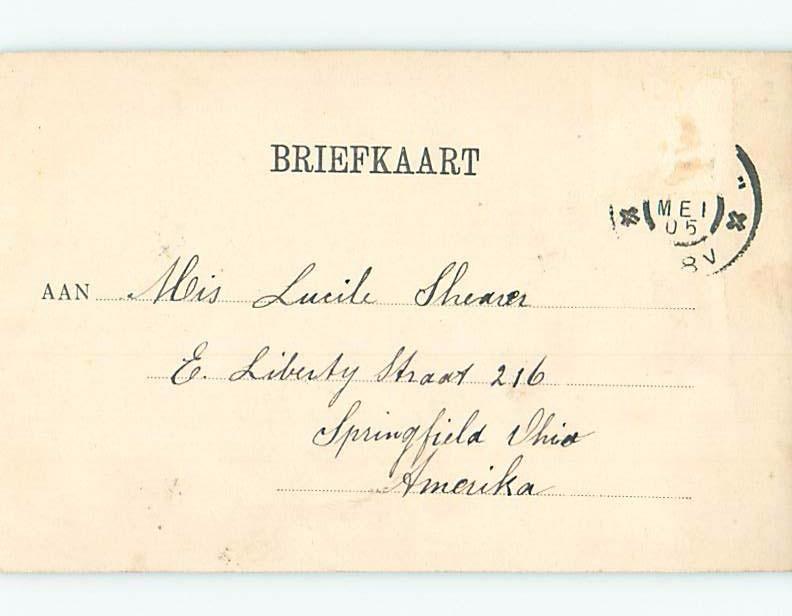 BRIEFKAART
MEI
05
8V
AAN Mis Lucile Shearer
E. Liberty Straat 216
Springfield Ohio
Amerika